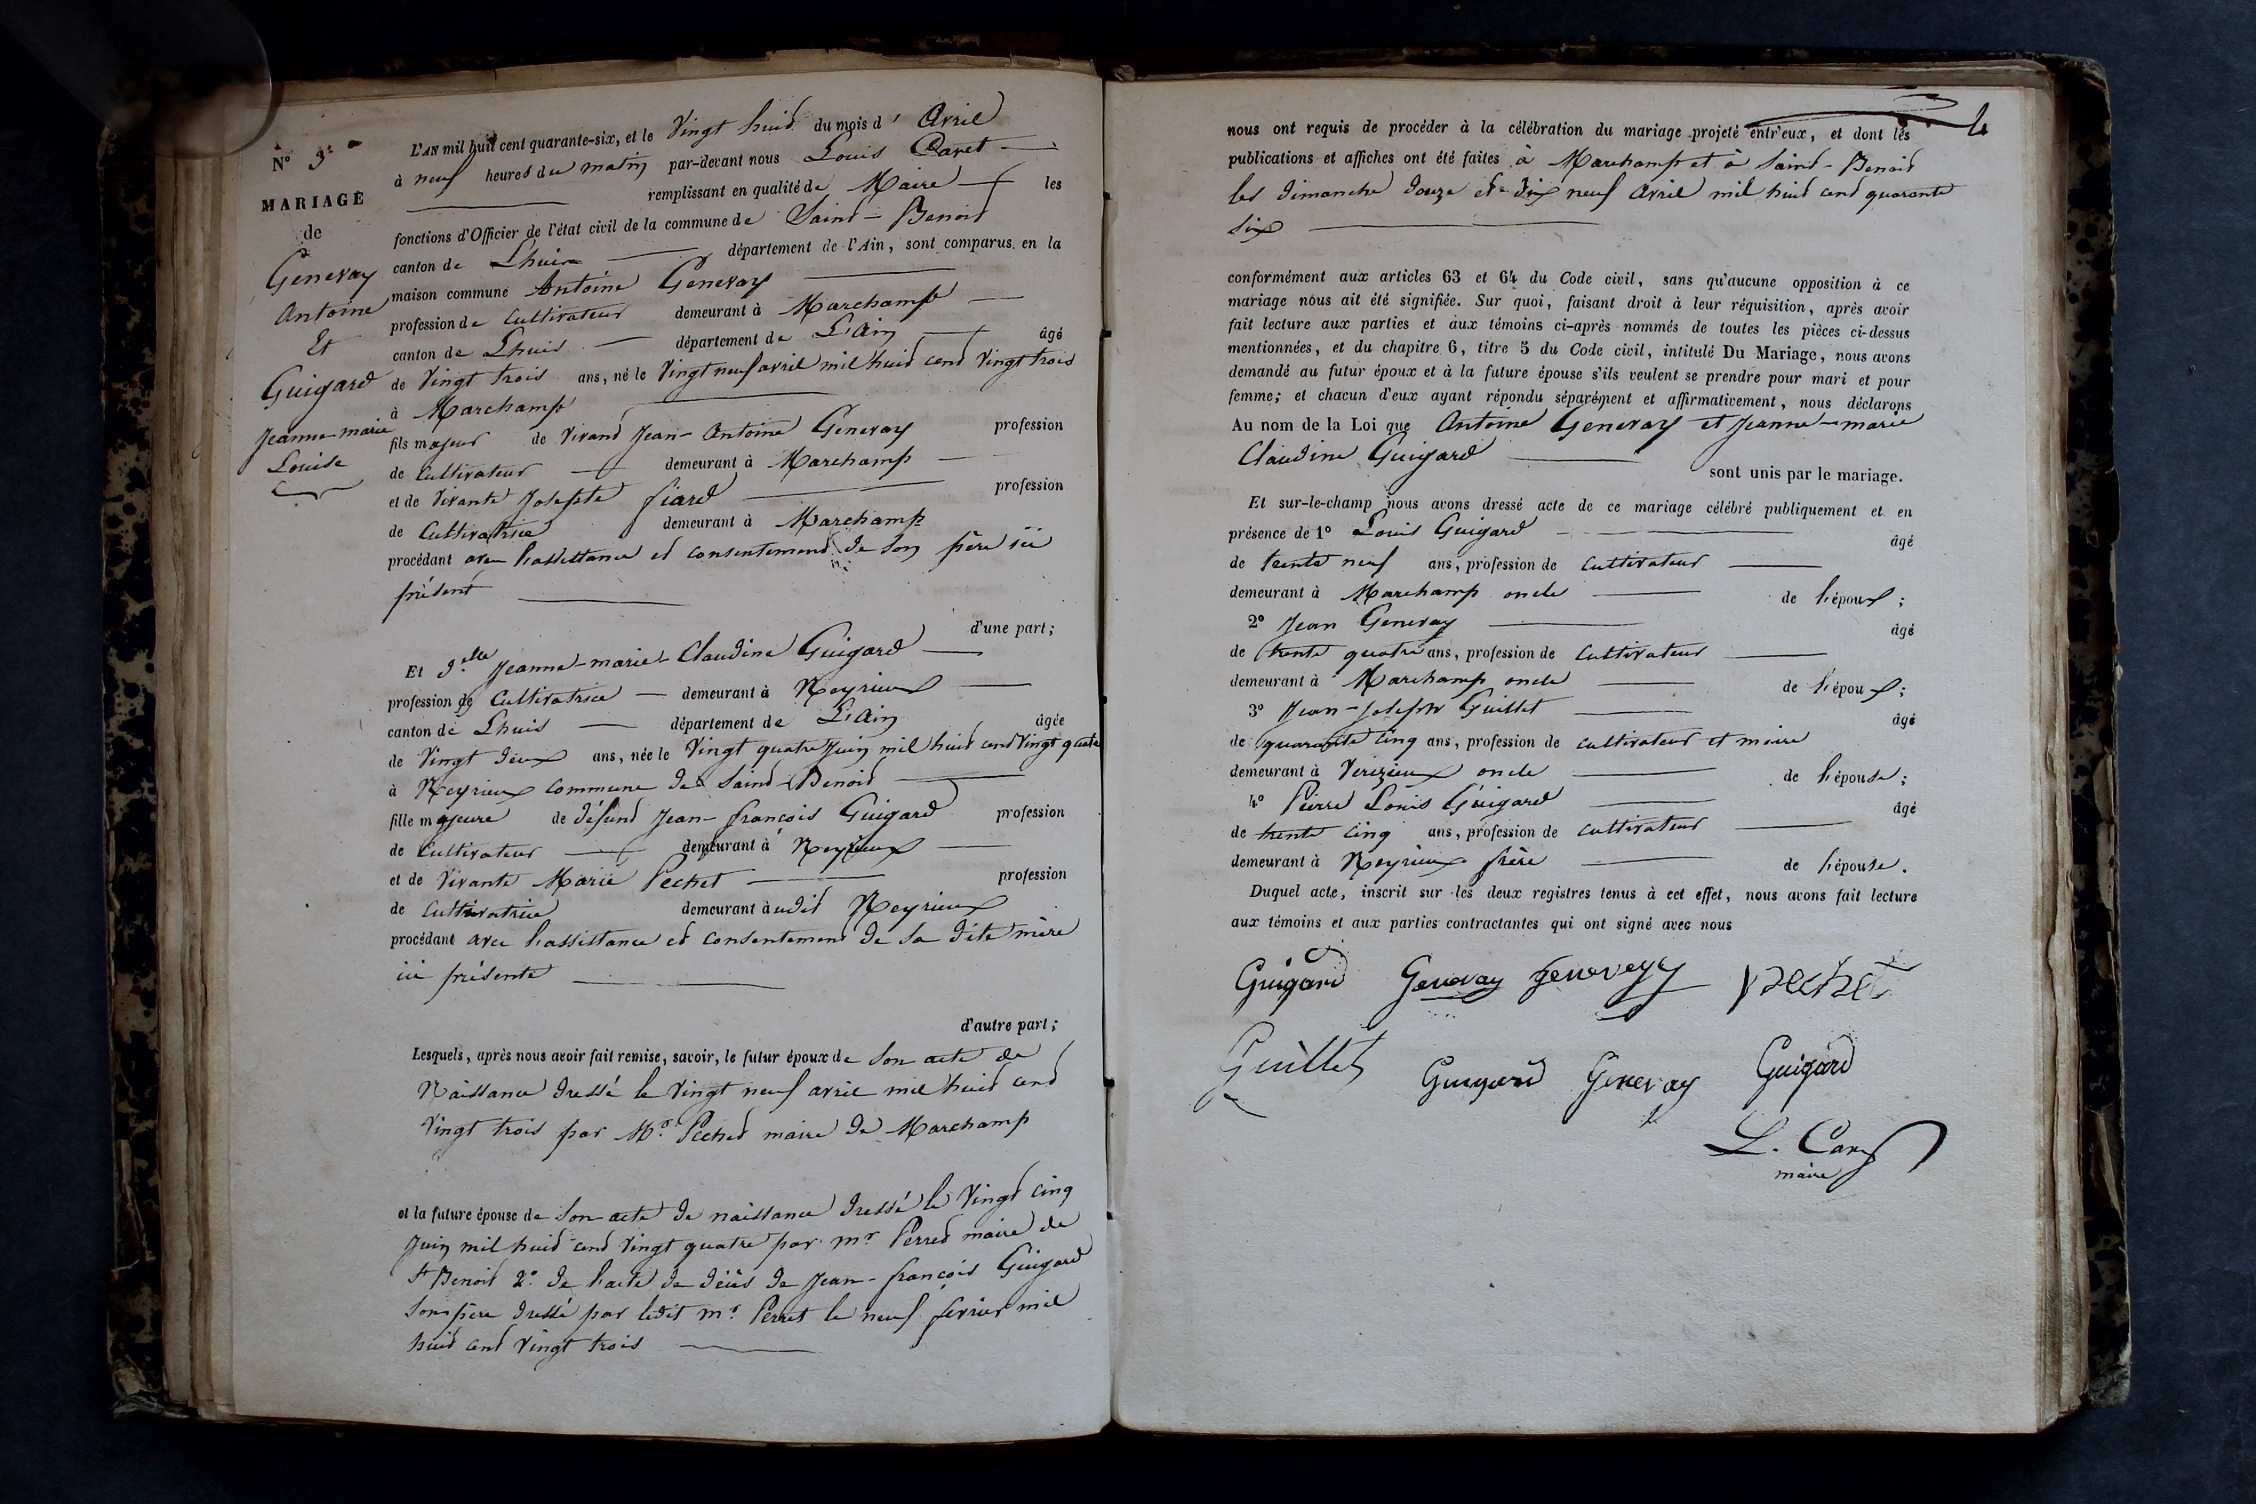 N° 3e
MARIAGE
de
Genevay
Antoine
Et
Guigard
Jeanne-marie
Louise
L'AN mil huit cent quarante-six, et le Vingt huit du mois d' Avril
à neuf heures du matin par-devant nous Louis Caret
remplissant en qualité de Maire les
fonctions d'Officier de l'état civil de la commune de Saint-Benoit
canton de Lhuis département de l'Ain, sont comparus en la
maison commune Antoine Genevay
profession de Cultivateur demeurant à Marchamp
canton de Lhuis département de L'Ain âgé
de Vingt trois ans, né le Vingt neuf avril mil huit cent Vingt trois
à Marchamp
fils majeur de Vivant Jean-Antoine Genevay profession
de Cultivateur demeurant à Marchamp
et de Vivante Josephte fiard profession
de Cultivatrice demeurant à Marchamp
procédant avec l'assistance et consentement de son père ici
présent
d'une part;
Et Delle Jeanne-marie-Claudine Guigard
profession de Cultivatrice demeurant à Neyrieux
canton de Lhuis département de L'Ain âgée
de Vingt deux ans, née le Vingt quatre Juin mil huit cent Vingt quatre
à Neyrieux commune de Saint-Benoit
fille majeure de défunt Jean-françois Guigard profession
de Cultivateur demeurant à Neyrieux
et de Vivante Marie Pechet profession
de Cultivatrice demeurant àudit Neyrieux
procédant avec l'assistance et consentement de sa dite mère
ici présente
d'autre part;
Lesquels, après nous avoir fait remise, savoir, le futur époux de Son acte de
Naissance dressé le Vingt neuf avril mil huit cent
Vingt trois par Mr. Pechet maire de Marchamp
et la future épouse de Son acte de naissance dressé le Vingt cinq
Juin mil huit cent Vingt quatre par mr Perret maire de
St Benoit 2° de l'acte de décès de Jean-françois Guigard
Son père dressé par ledit mr. Perret le neuf février mil
huit cent Vingt trois
4
nous ont requis de procéder à la célébration du mariage projeté entr'eux, et dont les
publications et affiches ont été faites à Marchamp et à Saint-Benoit
les dimanche douze et dix neuf avril mil huit cent quarante
six
conformément aux articles 63 et 64 du Code civil, sans qu'aucune opposition à ce
mariage nous ait été signifiée. Sur quoi, faisant droit à leur réquisition, après avoir
fait lecture aux parties et aux témoins ci-après nommés de toutes les pièces ci-dessus
mentionnées, et du chapitre 6, titre 5 du Code civil, intitulé Du Mariage, nous avons
demandé au futur époux et à la future épouse s'ils veulent se prendre pour mari et pour
femme; et chacun d'eux ayant répondu séparément et affirmativement, nous déclarons
Au nom de la Loi que Antoine Genevay et Jeanne-marie
Claudine Guigard
sont unis par le mariage.
Et sur-le-champ nous avons dressé acte de ce mariage célébré publiquement et en
présence de 1° Louis Guigard âgé
de trente neuf ans, profession de Cultivateur
demeurant à Marchamp oncle de l'époux;
2° Jean Genevay âgé
de trente quatre ans, profession de Cultivateur
demeurant à Marchamp oncle de l'époux;
3° Jean-Joseph Guillet âgé
de quarante cinq ans, profession de cultivateur et maire
demeurant à Verizieux oncle de l'épouse;
4° Pierre Louis Guigard âgé
de trente cinq ans, profession de cultivateur
demeurant à Neyrieux frère de l'épouse.
Duquel acte, inscrit sur les deux registres tenus à cet effet, nous avons fait lecture
aux témoins et aux parties contractantes qui ont signé avec nous
Guigard Genevay Genevey pechet
Guillet Guigard Genevay Guigard
L. Caret
maire